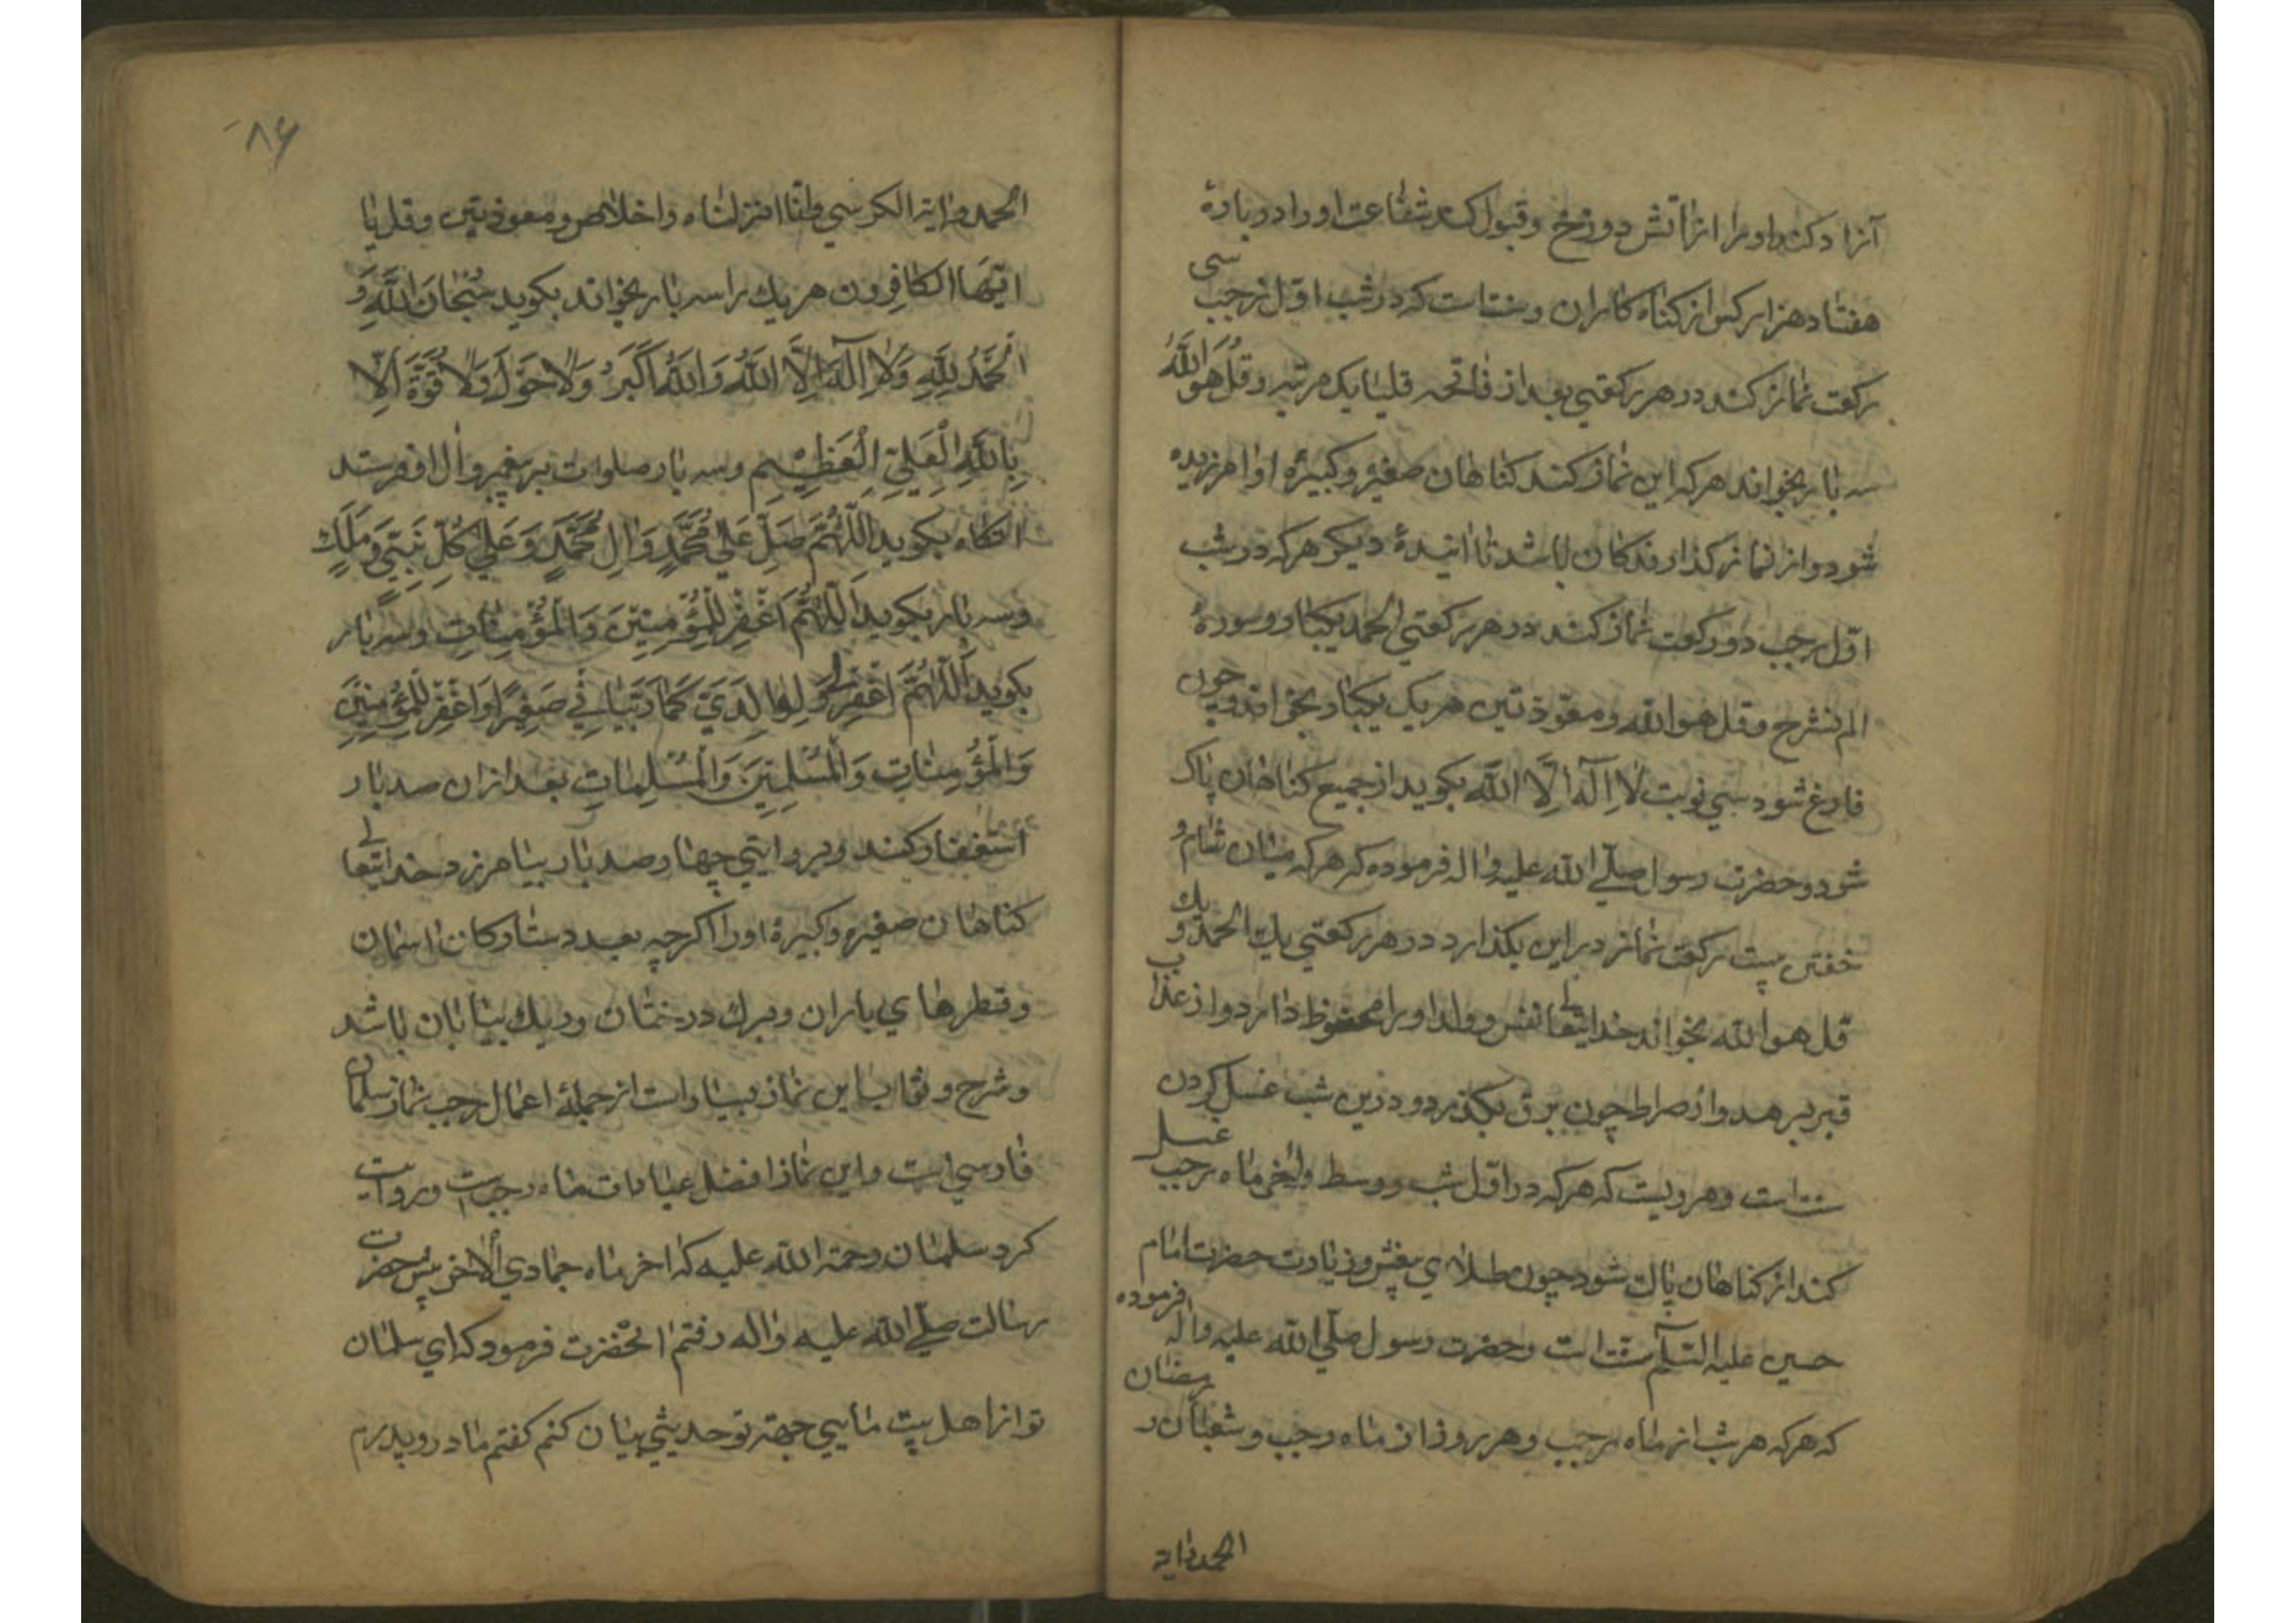 آزاد کند او را از آتش دوزخ و قبول کند شفاعت او را در بارهٔ
هفتاد هزار کس از کناه کاران و سنتست که در شب اوّل رجب سی
رکعت نماز کند در هر رکعتی بعد از فاتحه قلیا یک مرتبه و قُل هو اللّهُ
سه بار بخواند هر که این نماز کند کناهان صغیره و کبیره او امرزیده
شود و از نماز کذارندکان باشد تا اینده دیکر هر که در شب
اوّل رجب دو رکعت نماز کند در هر رکعتی الحمد یکبار و سورهٔ
الم نشرح و قل هو الله و معوّذتین هر یک یکبار بخواند و چون
فارغ شود سی نوبت لا اِلٓهَ اِلَّا اللّه بکوید از جمیع کناهان پاک
شود و حضرت رسول صلّی الله علیه و اله فرموده که هر که میان شام و
خفتن بیست رکعت نماز در این بکذارد در هر رکعتی یک الحمد و یک
قل هو الله بخواند خدایتعالی نفس و ولد او را محفوظ دارد و از عذاب
قبر برهد و از صراط چون برق بکذرد و درین شب غسل کردن
سنت است و مرویست که هر که در اوّل شب و وسط و اخر ماه رجب غسل
کند از کناهان پاک شود چون طلای بیغش و زیارت حضرت امام
حسین علیه السّلام سنّت است و حضرت رسول صلّی الله علیه و اله فرموده
که هر که هر شب از ماه رجب و هر روز از ماه رجب و شعبان و رمضان
الحمد و ایة
۸۶
الحمد و ایة الکرسی و انّا انزلناه و اخلاص و معوذتین و قل یا
ایّهَا الکافِرون هر یک را سه بار بخواند بکوید سُبْحَانَ اللّهِ وَ
الْحَمْدُ لِلّهِ وَ لا اِلٓهَ اِلَّا اللّهُ وَ اللّهُ اَکْبَرُ وَ لا حَوْلَ وَ لا قُوَّةَ اِلّا
بِاللّهِ الْعَلِیِّ الْعَظِیْمِ و سه بار صلوات بر پیغمبر و ال او فرستد
انکاه بکوید اَللّهُمَّ صَلِّ عَلی مُحَمَّدٍ وَ الِ مُحَمَّدٍ وَ عَلی کُلِّ نَبِیٍّ وَ مَلَکٍ
و سه بار بکوید اَللّهُمَّ اغْفِرْ لِلْمُؤْمِنِیْنَ وَ الْمُؤْمِنَاتِ و سه بار
بکوید اَللّهُمَّ اغْفِرْ لی وَ لِوَالِدَیَّ کَمَا رَبَّیَانِی صَغِیْرًا وَ اغْفِرْ لِلْمُؤْمِنِیْنَ
وَ الْمُؤْمِنَاتِ وَ الْمُسْلِمِیْنَ وَ الْمُسْلِمَاتِ بعد از ان صد بار
استغفار کند و بر وایتی چهار صد بار بیامرزد خدایتعالی
کناهان صغیره و کبیرهٔ او را اکر چه بعدد ستارکان اسمان
و قطرهای باران و برک درختان و ریک بیابان باشد
و شرح و ثواب این نماز بسیار است از جملهٔ اعمال رجب نماز سلمان
فارسی است و این نماز افضل عبادات ماه رجبست و روایت
کرد سلمان رحمة الله علیه که اخر ماه جمادی الاخر پیش حضرت
رسالت صلّی الله علیه و اله رفتم انحضرت فرمود که ای سلمان
تو از اهل بیت مایی جهة تو حدیثی بیان کنم کفتم مادر و پدرم